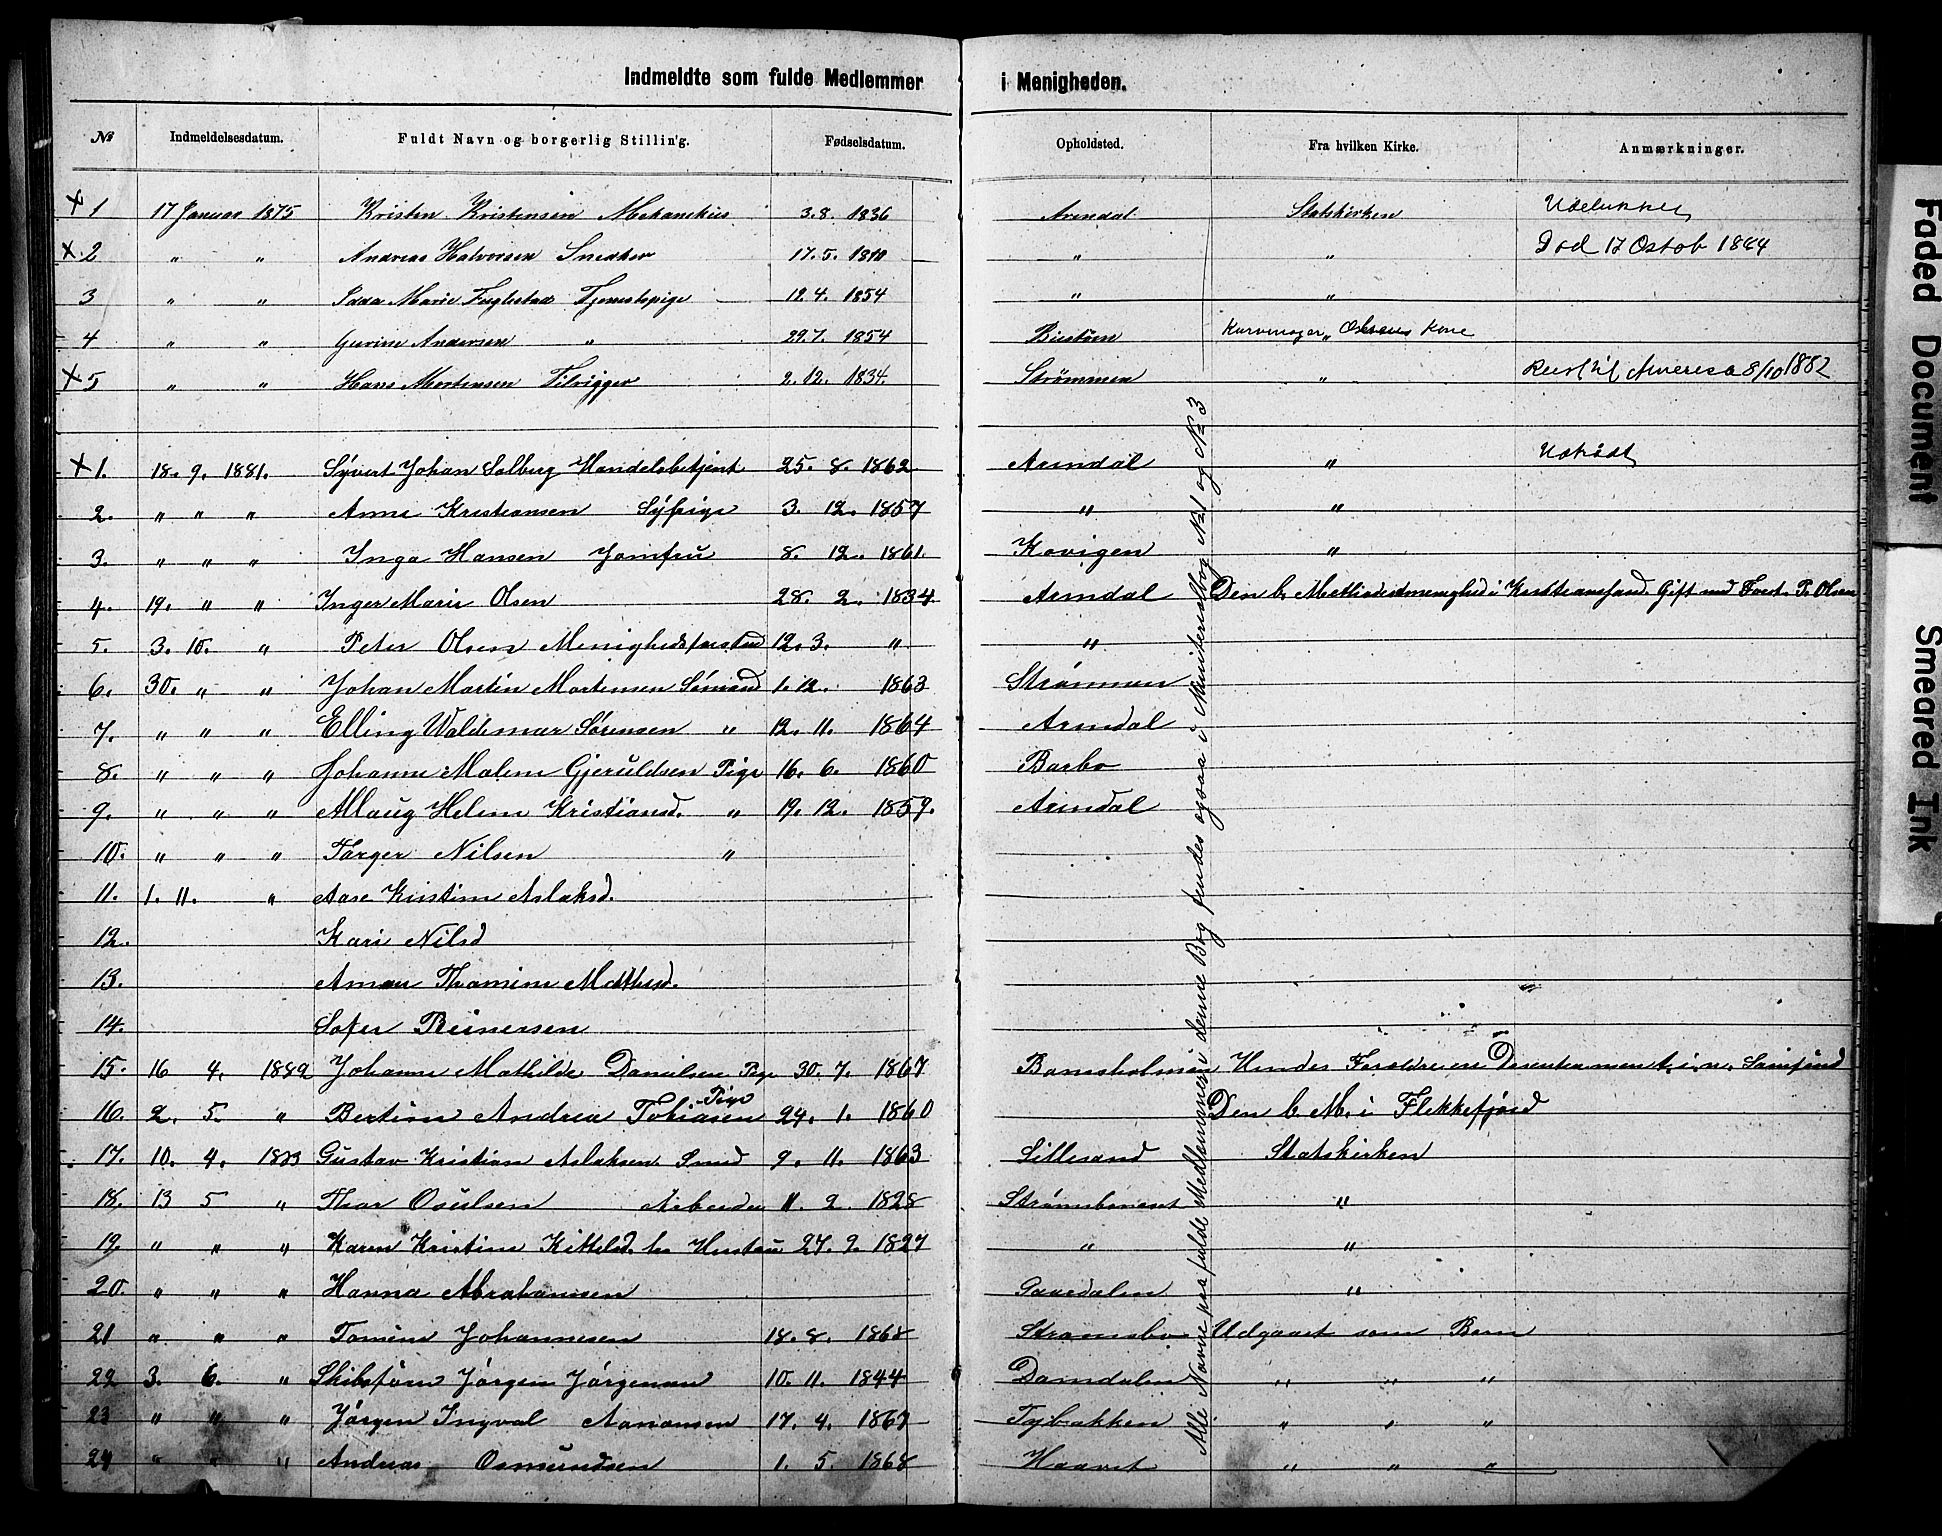 Indmeldte som fulde Medlemmer i Menigheden.
№ Indmeldelsesdatum. Fuldt Navn og borgerlig Stilling. Fødselsdatum. Opholdsted. Fra hvilken Kirke. Anmærkninger.
+ 1 17 Januar 1875 Kristen Kristensen Mekanikus 3.8. 1836 Arendal Statskirken Udelukket
+ 2 " " Andreas Halvorsen Snedker 17.5. 1810 " " Død 17 1884
3 " " Marie Fuglestad Tjenestepige 12.4. 1854 " "
4 " " Gurine Andersen " 29.7. 1854 Kone
+ 5 " " Hans Mortensen Tilrigger 2.12. 1834. Strømmen " Reist til 8/10 1882
+ 1. 18. 9. 1881. Syvert Johan Solberg Handelsbetjent 25. 8. 1862 Arendal " Udtrådt
2. " " " Anne Kristiansen Sypige 3. 12. 1857 " "
3. " " " Inga Hansen Jomfru 8. 12. 1861. Kovigen "
4. 19. " " Inger Marie Olsen 28. 2. 1834. Arendal Den b. Methodistmenighed i Kristiansand. Gift med P. Olsen
5. 3. 10. " Peter Olsen 12. 3. " "
6. 30. " " Johan Martin Mortensen Sømand 1. 12. 1863 Strømmen
7. " " " Elling Waldemar Sørensen " 12. 11. 1864 Arendal
8. " " " Johanne Malene Gjeruldsen Pige 16. 6. 1860 Barbo
9. " " " Allaug Helene Kristiansd. " 19. 12. 1859. Arendal
10. " " " Targer Nilsen "
11. 1. 11. " Aase Kristine Aslaksd.
12. Kari Nilsd
13. Thomine
14. Reinersen
15. 16 4. 1882 Johanne Mathilde Danielsen Pige 30. 7. 1867 Hendes Forældre
16. 2. 5. " Bertine Andrea Tobiasen Pige 24. 1. 1860 Den b. M. i Flekkefjord
17. 10. 4. 1883 Gustav Kristian Aslaksen Smed 9. 11. 1863 Lillesand Statskirken
18. 13 5 " Thor Osulsen Arbeider 11. 2. 1828 "
19. " " " Karen Kristine Kittelsd. hs Hustru 27. 9. 1827 " "
20. " " " Hanna Abrahamsen "
21 " " " Tomine Johannesen 18. 8. 1868 Strømsbo Udgaaet som Barn
22 3. 6. " Jørgen Jørgensen 10. 11. 1844 Damdalen " " "
23 " " " Jørgen Ingval 17. 4. 1867 Tybakken " " "
24 " " " Andreas Osmundsen 1. 5. 1868 " " "
Alle Navne paa fulde Medlemmer i denne Bog findes ogsaa i Ministerialbog № 1 og № 3
Faded Document
Smeared Ink